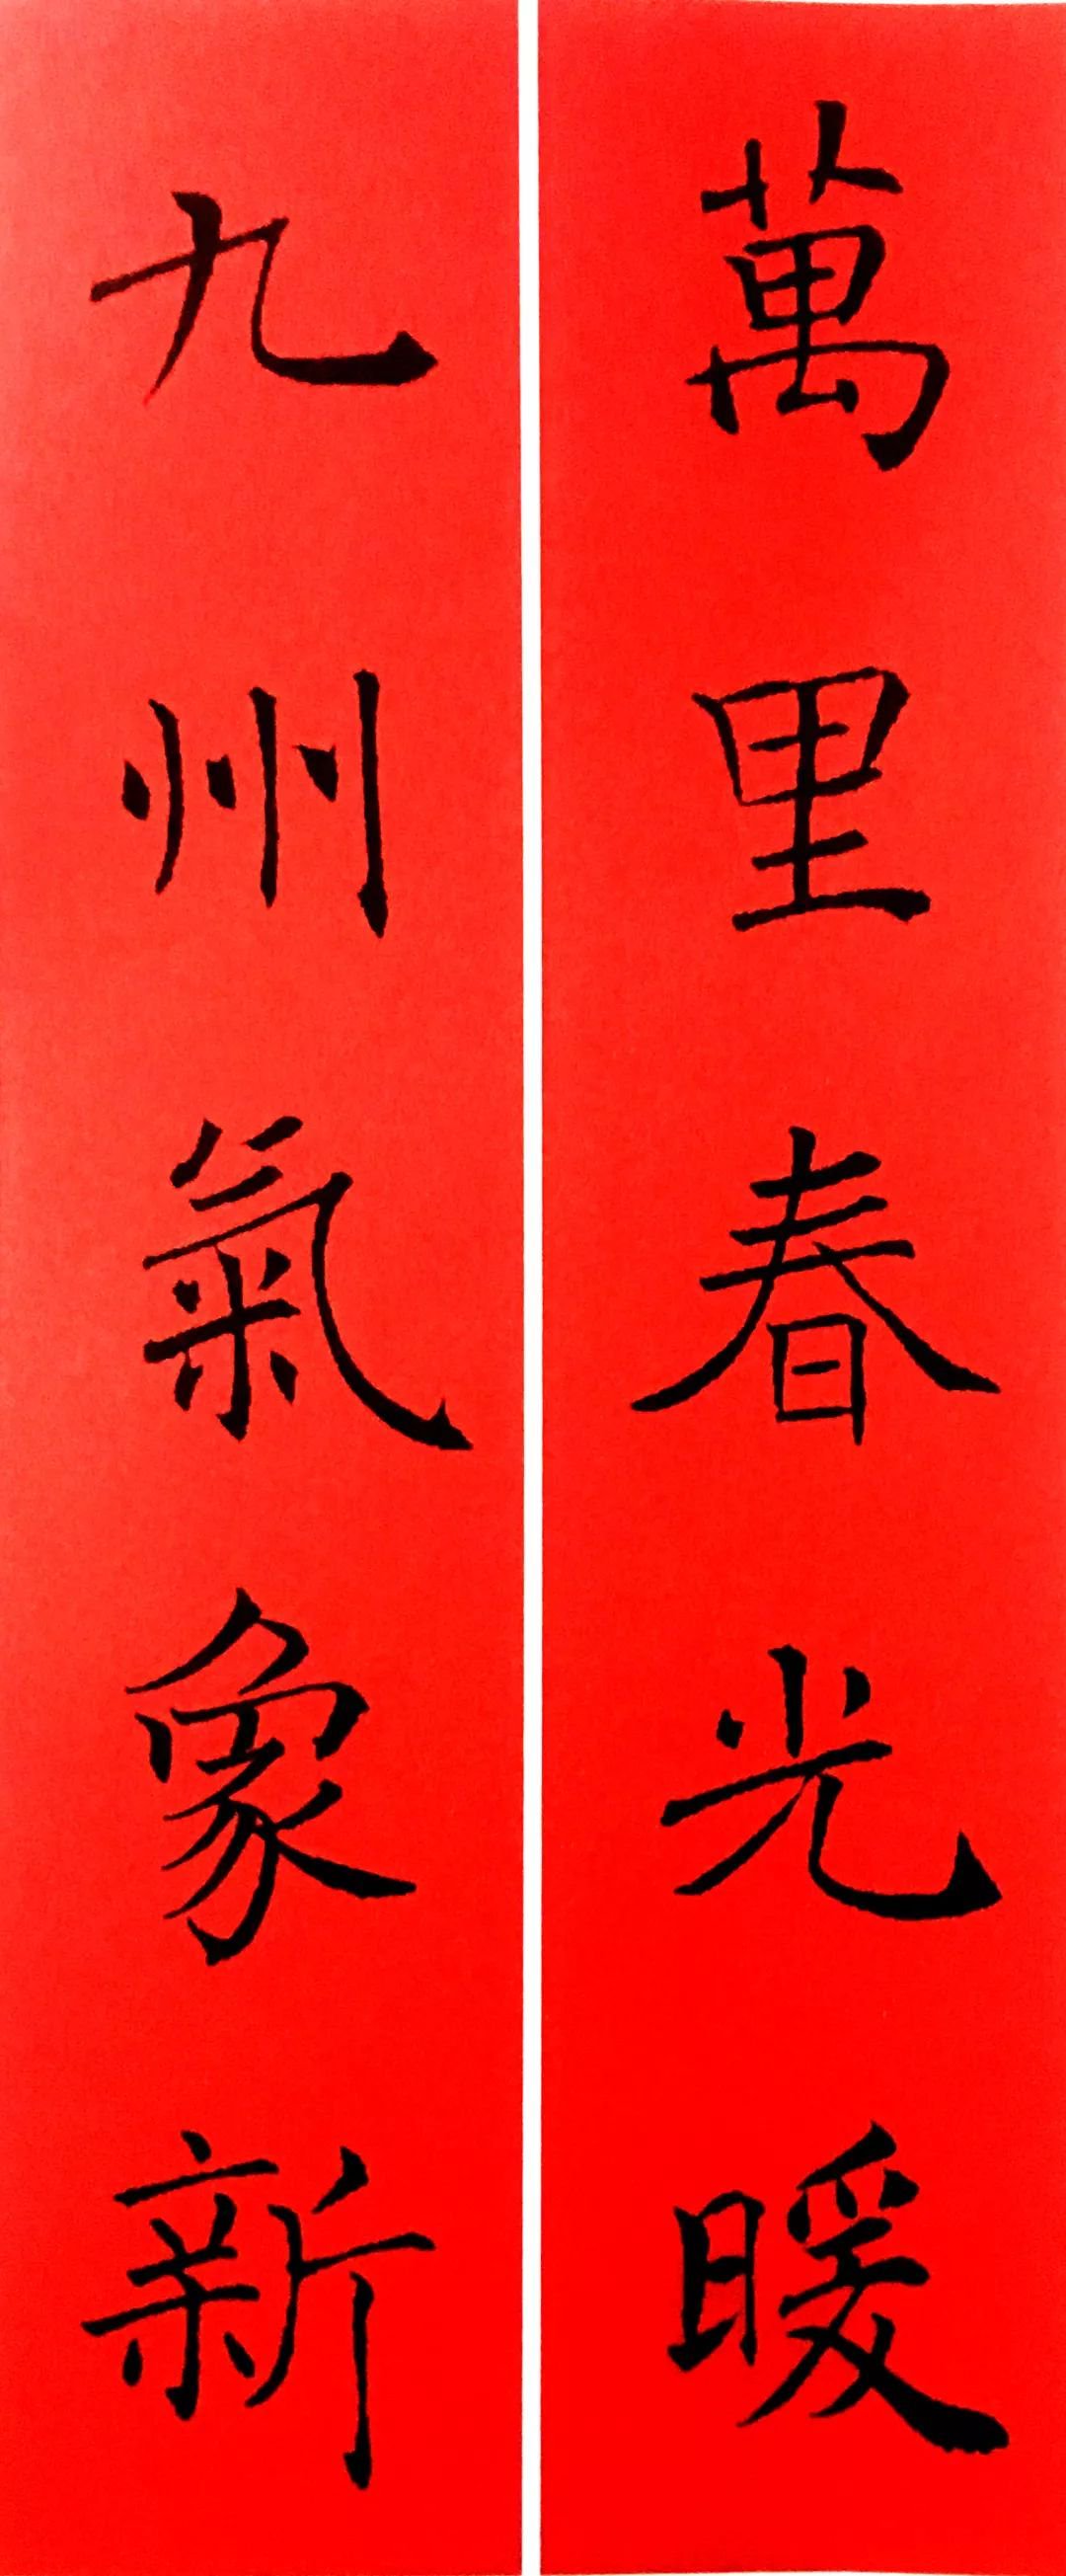 萬里春光暖
九州氣象新